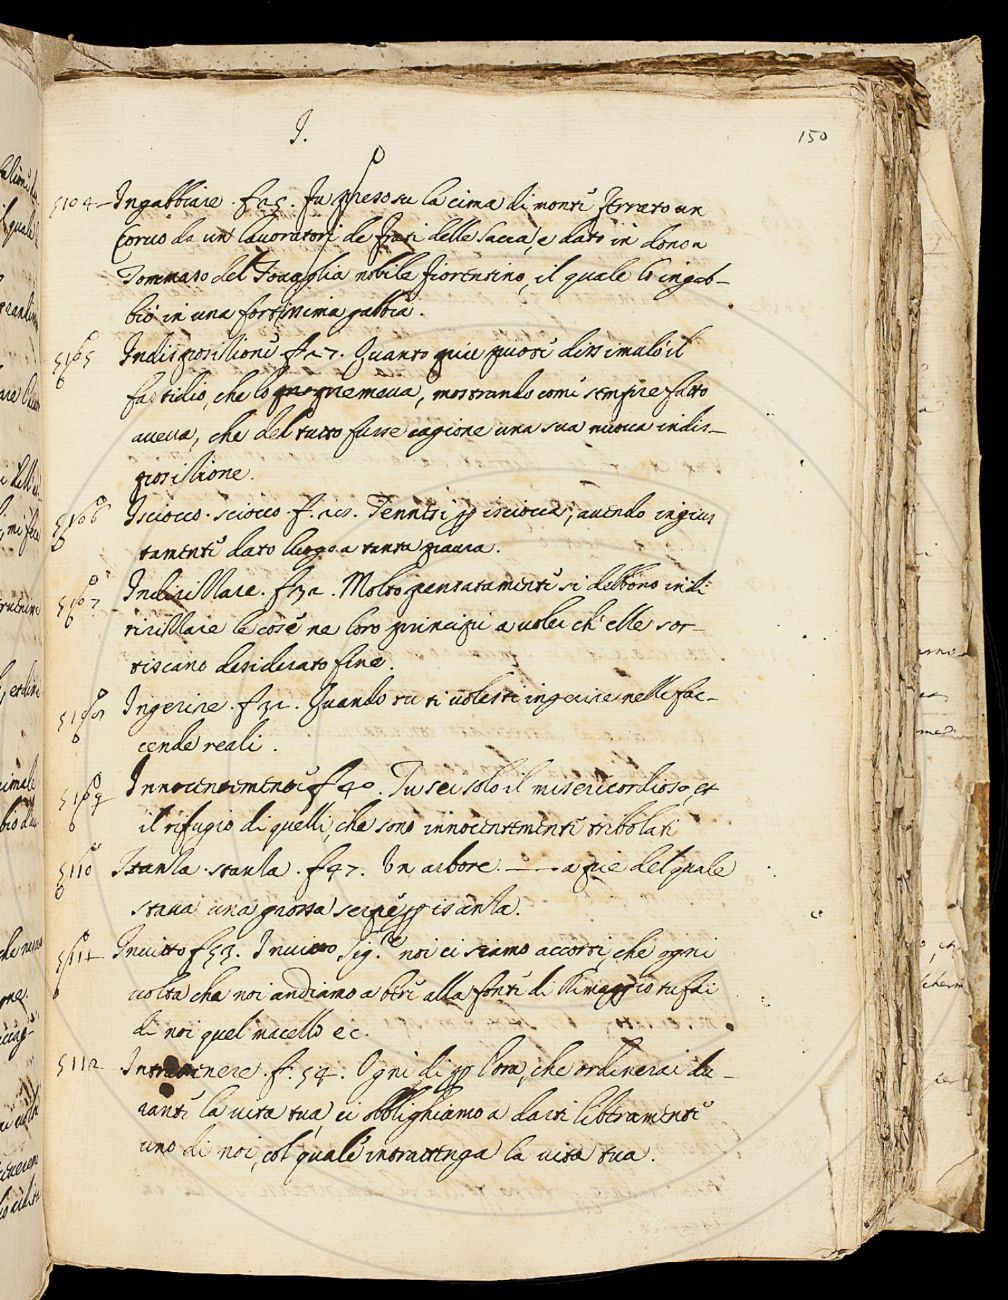 I.
150
5104 Ingabbiare . f. 25. Fu preso su la cima di monte Ferrato un
Corvo da un lavoratore de frati delle Sacca, e dato in dono a
Tommaso del Tovaglia nobile fiorentino, il quale lo ingab-
biò in una fortissima gabbia .
5105 Indisposizione f. 27. Quanto puie puote dissimulò il
fastidio, che lo premeva, mostrando come sempre fatto
aveva, che del tutto fusse cagione una sua nuova indis-
posizione .
5106 Isciocco . sciocco . f. Tennesi p isciocca, avendo ingius
tamente dato luogo a tanta paura .
5107 Indirizzare . f. 32 . Molto pensatamente si debbono indi
rizzare le cose ne loro principii a voler ch' elle sor-
tiscano desiderato fine .
5108 Ingerire . f. 32 . Quando tu ti volessi ingerire nelle fac-
cende reali .
5109 Innocentemente f. 40 . Tu sei solo il misericordioso, et
il rifugio di quelli, che sono innocentemente tribolati
5110 Istanza . stanza . f. 47 . Un arbore . —— a pie del quale
stava una grossa serpe p istanza .
5111 Invitto f. 53 . Invitto Sig.e noi ci siamo accorti che ogni
volta che noi andiamo a bere alla fonte di tu fai
di noi quel macello ec .
5112 Intrattenere . f. 54 . Ogni di p l'ora, che ordinerai du-
rante la vita tua, ci obblighiamo a darti liberamente
uno di noi, col quale intrattenga la vita tua .